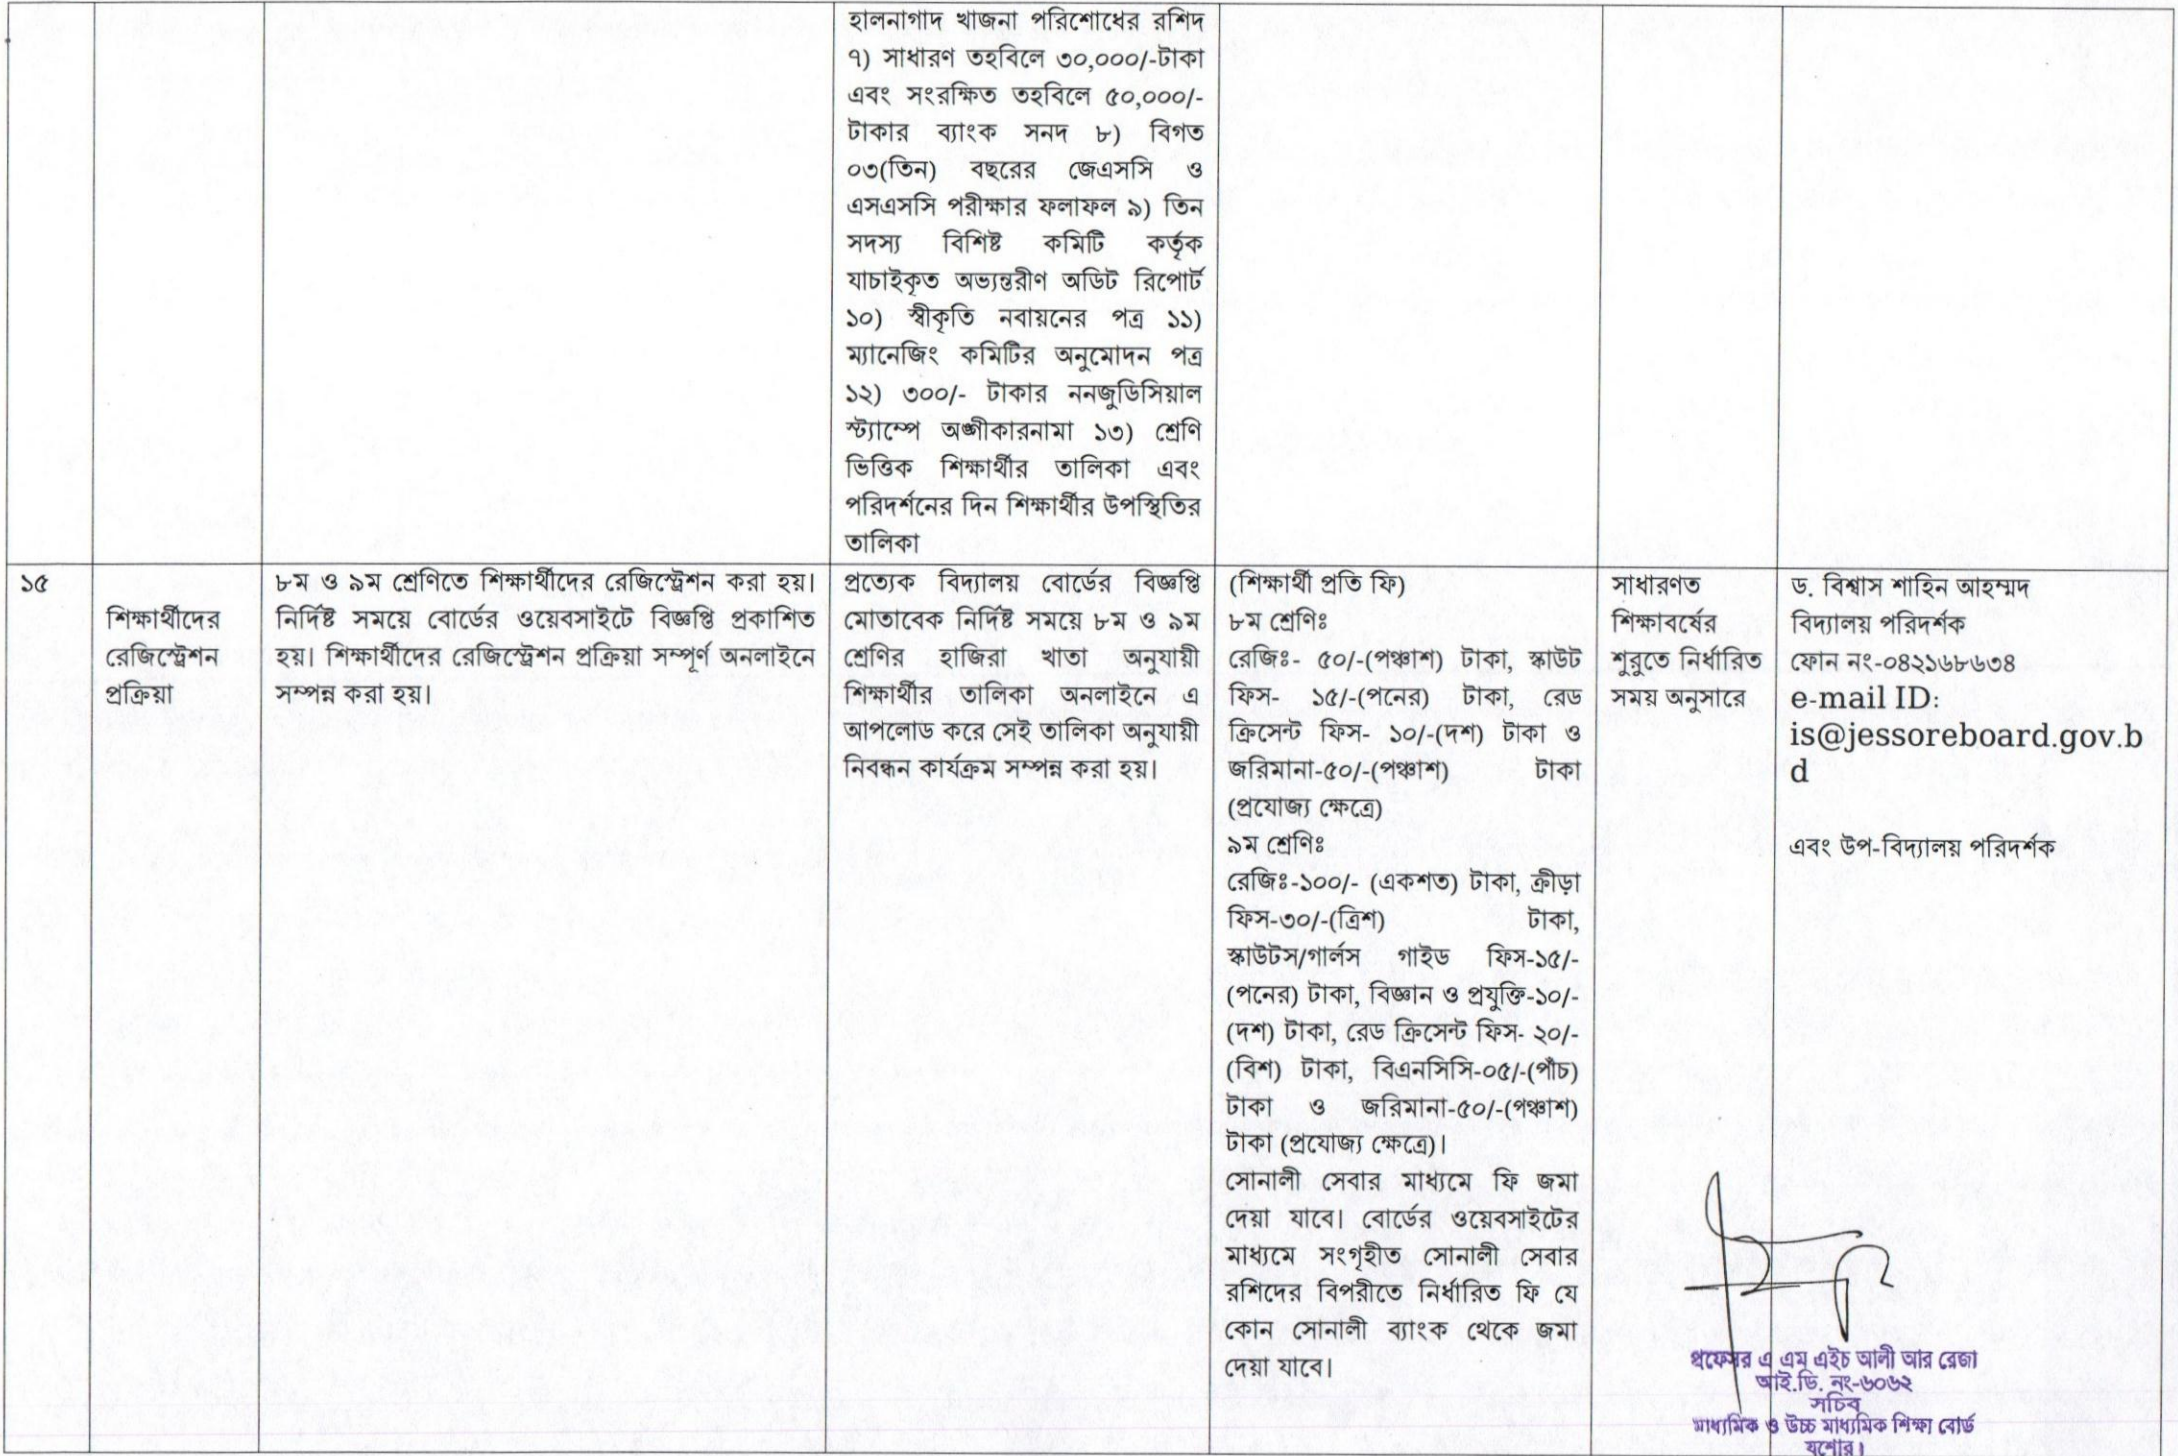 হালনাগাদ খাজনা পরিশোধের রশিদ
৭) সাধারণ তহবিলে ৩০,০০০/-টাকা
এবং সংরক্ষিত তহবিলে ৫০,০০০/-
টাকার ব্যাংক সনদ ৮) বিগত
০৩(তিন) বছরের জেএসসি ও
এসএসসি পরীক্ষার ফলাফল ৯) তিন
সদস্য বিশিষ্ট কমিটি কর্তৃক
যাচাইকৃত অভ্যন্তরীণ অডিট রিপোর্ট
১০) স্বীকৃতি নবায়নের পত্র ১১)
ম্যানেজিং কমিটির অনুমোদন পত্র
১২) ৩০০/- টাকার ননজুডিসিয়াল
স্ট্যাম্পে অঙ্গীকারনামা ১৩) শ্রেণি
ভিত্তিক শিক্ষার্থীর তালিকা এবং
পরিদর্শনের দিন শিক্ষার্থীর উপস্থিতির
তালিকা
১৫
শিক্ষার্থীদের
রেজিস্ট্রেশন
প্রক্রিয়া
৮ম ও ৯ম শ্রেণিতে শিক্ষার্থীদের রেজিস্ট্রেশন করা হয়।
নির্দিষ্ট সময়ে বোর্ডের ওয়েবসাইটে বিজ্ঞপ্তি প্রকাশিত
হয়। শিক্ষার্থীদের রেজিস্ট্রেশন প্রক্রিয়া সম্পূর্ণ অনলাইনে
সম্পন্ন করা হয়।
প্রত্যেক বিদ্যালয় বোর্ডের বিজ্ঞপ্তি
মোতাবেক নির্দিষ্ট সময়ে ৮ম ও ৯ম
শ্রেণির হাজিরা খাতা অনুযায়ী
শিক্ষার্থীর তালিকা অনলাইনে এ
আপলোড করে সেই তালিকা অনুযায়ী
নিবন্ধন কার্যক্রম সম্পন্ন করা হয়।
(শিক্ষার্থী প্রতি ফি)
৮ম শ্রেণিঃ
রেজিঃ- ৫০/-(পঞ্চাশ) টাকা, স্কাউট
ফিস- ১৫/-(পনের) টাকা, রেড
ক্রিসেন্ট ফিস- ১০/-(দশ) টাকা ও
জরিমানা-৫০/-(পঞ্চাশ) টাকা
(প্রযোজ্য ক্ষেত্রে)
৯ম শ্রেণিঃ
রেজিঃ-১০০/- (একশত) টাকা, ক্রীড়া
ফিস-৩০/-(ত্রিশ) টাকা,
স্কাউটস/গার্লস গাইড ফিস-১৫/-
(পনের) টাকা, বিজ্ঞান ও প্রযুক্তি-১০/-
(দশ) টাকা, রেড ক্রিসেন্ট ফিস- ২০/-
(বিশ) টাকা, বিএনসিসি-০৫/-(পাঁচ)
টাকা ও জরিমানা-৫০/-(পঞ্চাশ)
টাকা (প্রযোজ্য ক্ষেত্রে)।
সোনালী সেবার মাধ্যমে ফি জমা
দেয়া যাবে। বোর্ডের ওয়েবসাইটের
মাধ্যমে সংগৃহীত সোনালী সেবার
রশিদের বিপরীতে নির্ধারিত ফি যে
কোন সোনালী ব্যাংক থেকে জমা
দেয়া যাবে।
সাধারণত
শিক্ষাবর্ষের
শুরুতে নির্ধারিত
সময় অনুসারে
ড. বিশ্বাস শাহিন আহম্মদ
বিদ্যালয় পরিদর্শক
ফোন নং-০৪২১৬৮৬৩৪
e-mail ID:
is@jessoreboard.gov.b
d
এবং উপ-বিদ্যালয় পরিদর্শক
প্রফেসর এ এম এইচ আলী আর রেজা
আই.ডি. নং-৬০৬২
সচিব
মাধ্যমিক ও উচ্চ মাধ্যমিক শিক্ষা বোর্ড
যশোর।